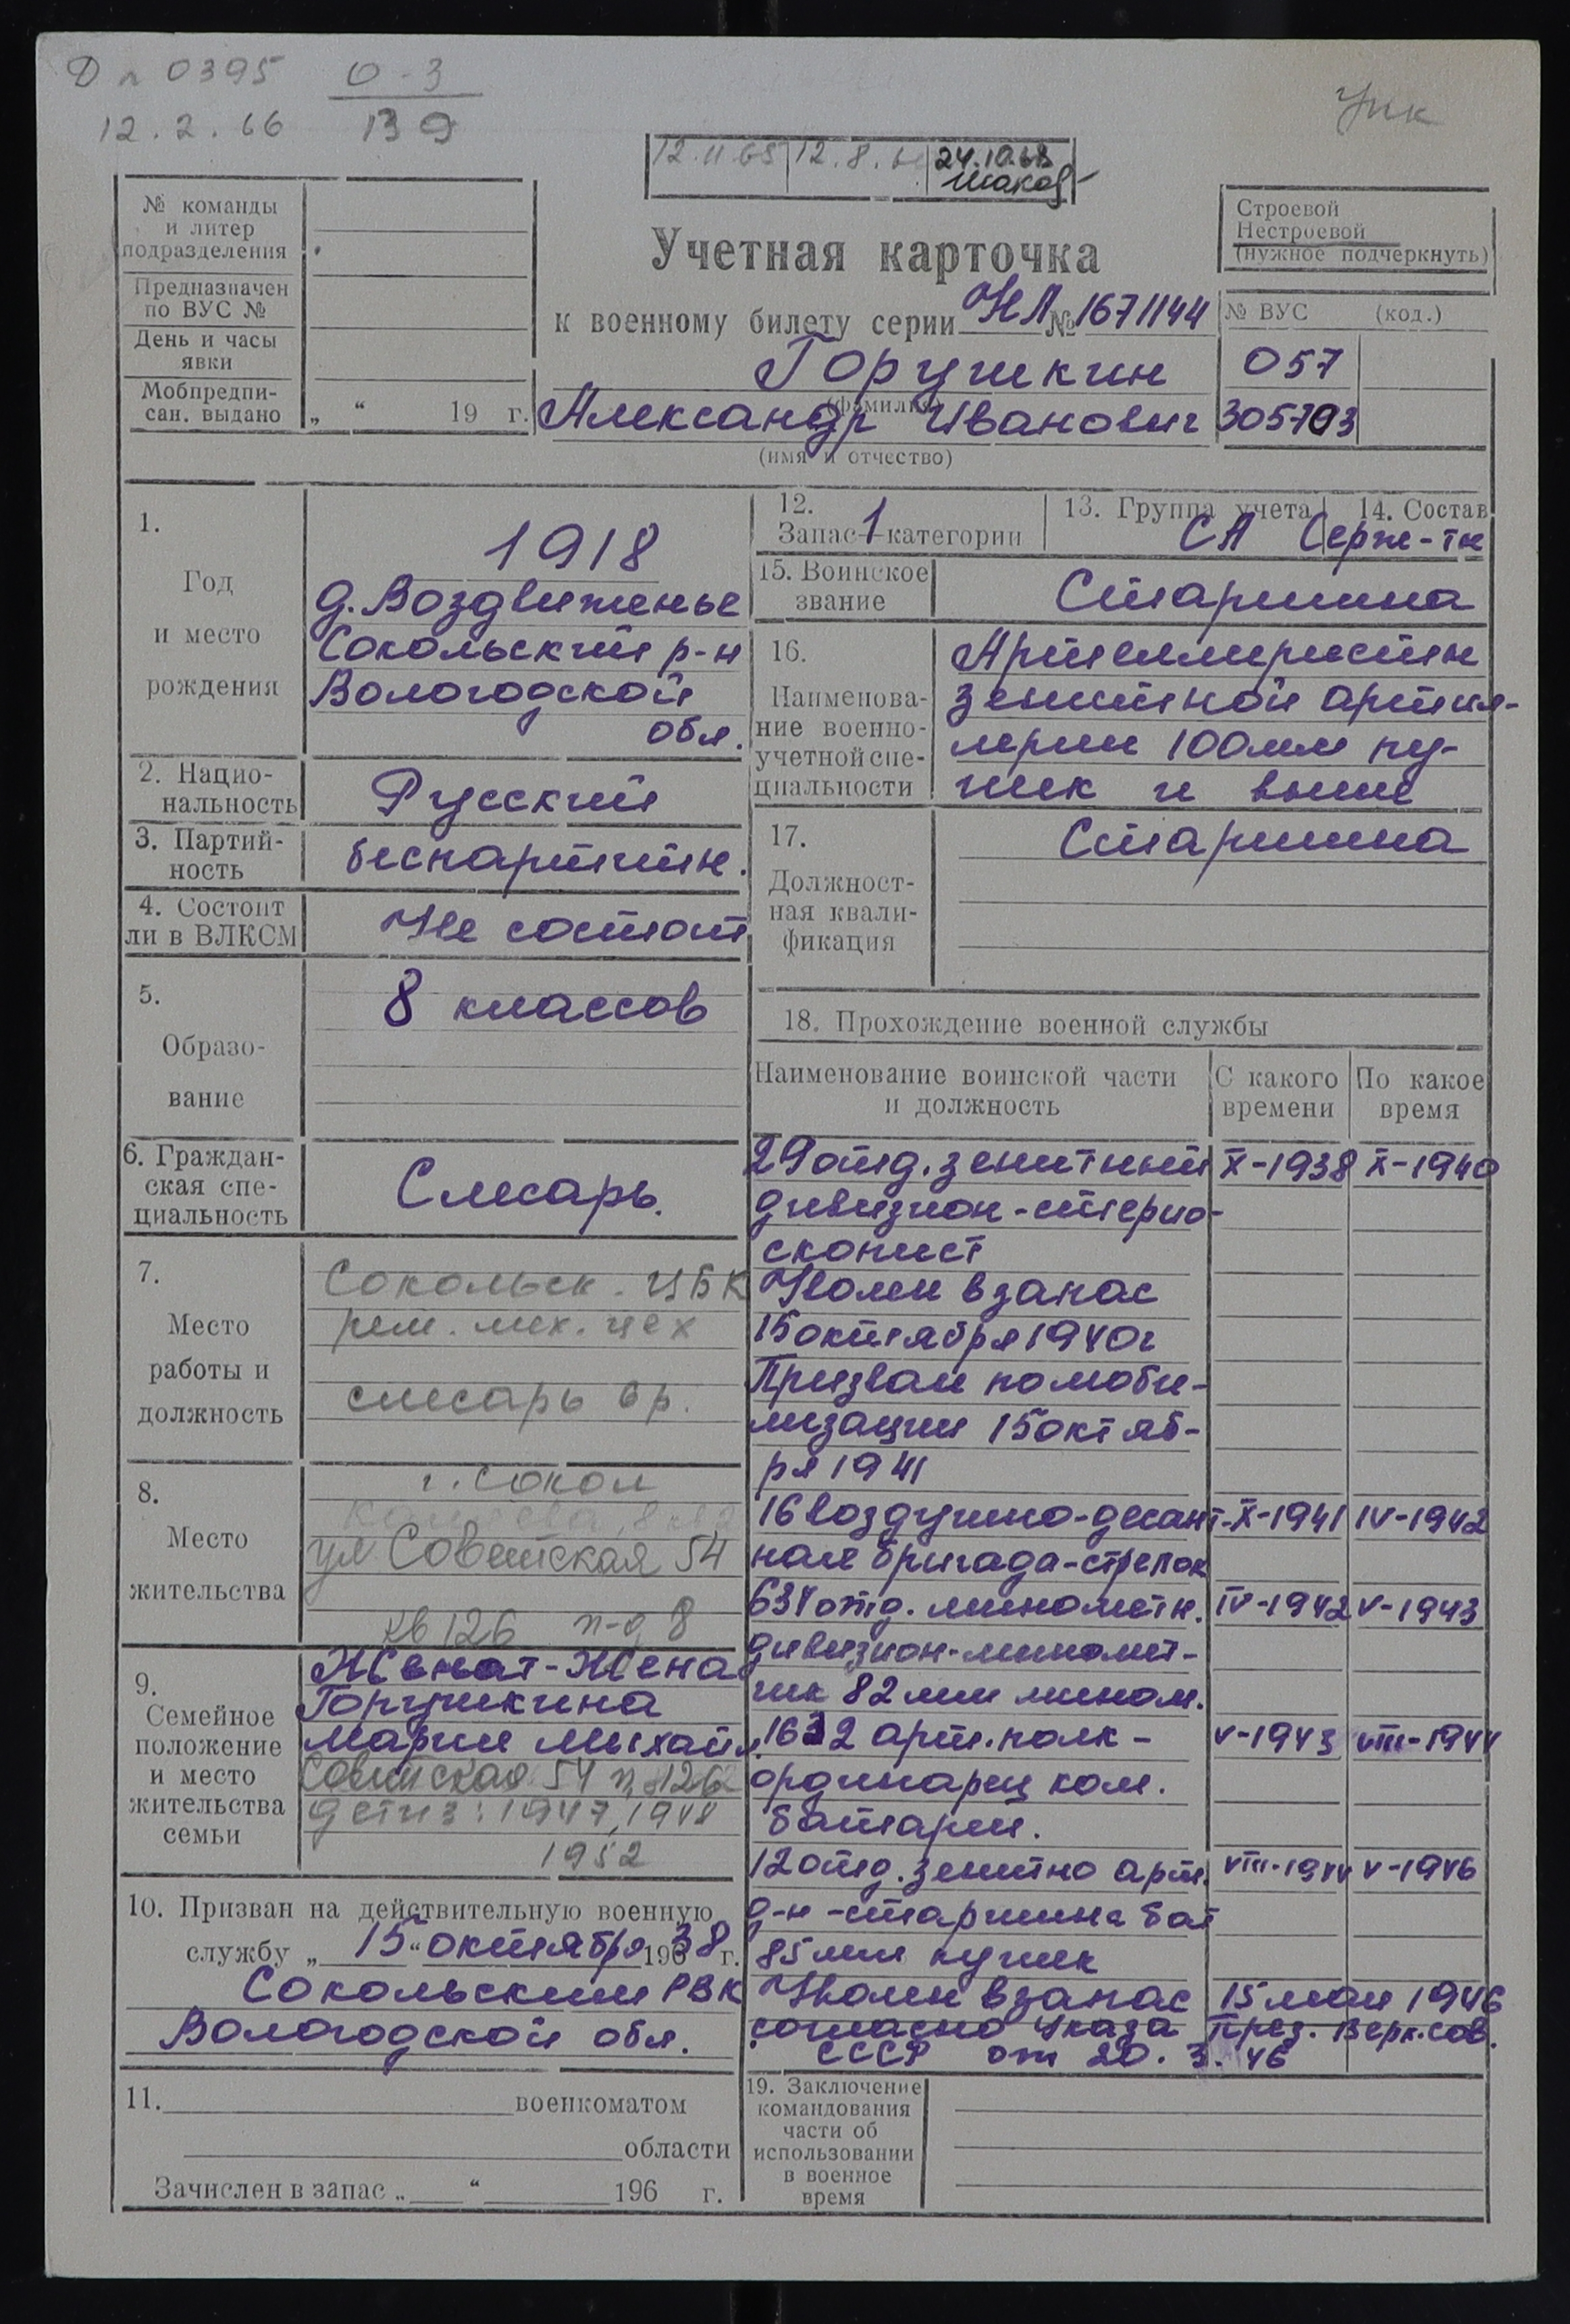 Д п 0395 0-3
12.2.66 139
Упк
12.11.65 12.8. 24.10.68
№ команды
и литер
подразделения
Предназначен
по ВУС №
День и часы
явки
Мобпредпи-
сан. выдано „ “ 19 г.
Учетная карточка
к военному билету серии НЛ № 1671144
Горушкин
(фамилия)
Александр Иванович
(имя и отчество)
Строевой
Нестроевой
(нужное подчеркнуть)
№ ВУС (код.)
057
305703
1.
Год
и место
рождения
1918
д. Воздвиженье
Сокольский р-н
Вологодской
обл.
2. Нацио-
нальность
Русский
3. Партий-
ность
беспартийн.
4. Состоит
ли в ВЛКСМ
Не состоит
5.
Образо-
вание
8 классов
6. Граждан-
ская спе-
циальность
Слесарь.
7.
Место
работы и
должность
Сокольск. ЦБК
рем. мех. цех
слесарь 6 р.
8.
Место
жительства
г. Сокол
ул Советская 54
кв 126 п-д 8
9.
Семейное
положение
и место
жительства
семьи
Женат - Жена
Горушкина
Мария Михайл.
Советская 54 126
дети з: 1947, 1948
1952
10. Призван на действительную военную
службу „ 15 “ октября 1938 г.
Сокольским РВК
Вологодской обл.
11. военкоматом
области
Зачислен в запас „ “ 196 г.
12.
Запас 1 категории
13. Группа учета
СА
14. Состав
Серж-тн
15. Воинское
звание
Старшина
16.
Наименова-
ние военно-
учетной спе-
циальности
Артиллеристы
зенитной артил-
лерии 100мм пу-
шек и выше
17.
Должност-
ная квали-
фикация
Старшина
18. Прохождение военной службы
Наименование воинской части
и должность
С какого
времени
По какое
время
29 отд. зенитный X-1938 X-1940
дивизион - стерио-
скопист
Уволен в запас
15 октября 1940г
Призван по моби-
лизации 15 октяб-
ря 1941
16 воздушно-десант- X-1941 IV-1942
ная бригада - стрелок
634 отд. минометн. IV-1942 V-1943
дивизион - миномет-
чик 82 мм мином.
1632 арт. полк - V-1943 VIII-1944
ординарец ком.
батареи.
12 отд. зенитно арт. VIII-1944 V-1946
д-н - старшина бат
85 мм пушек
Уволен в запас 15 мая 1946
согласно Указа През. Верх. Сов.
СССР от 20. 3. 46
19. Заключение
командования
части об
использовании
в военное
время